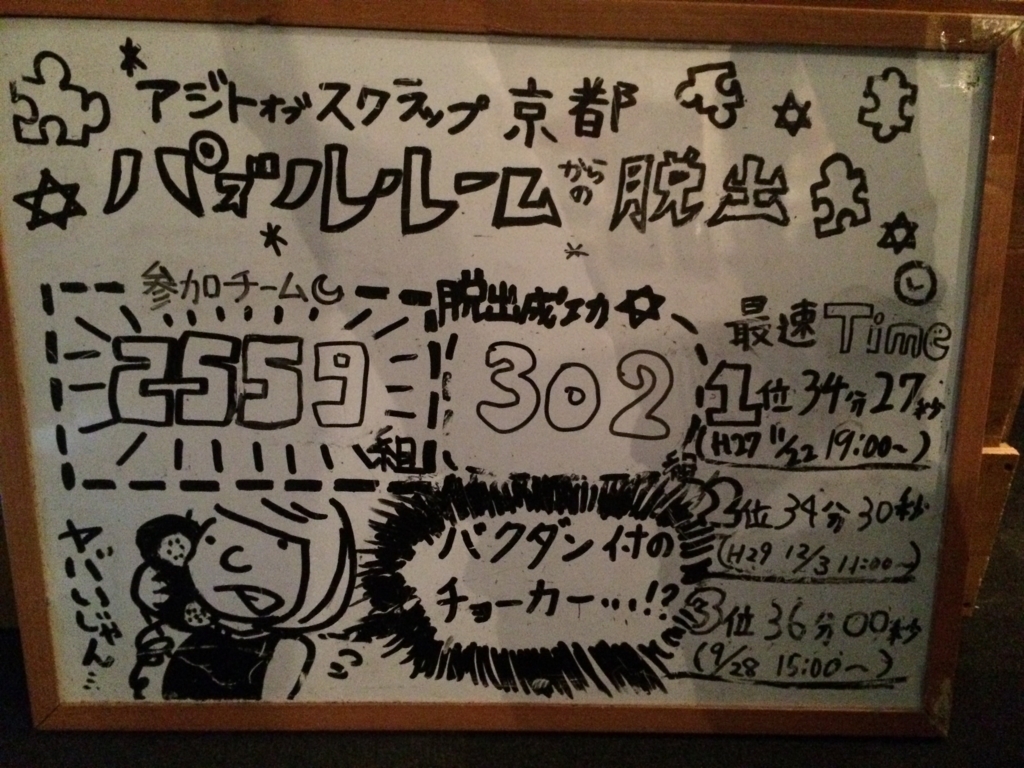 アジトオブスクラップ 京都
パズルルームからの脱出
参加チーム
2559
組
脱出成功
302
組
最速Time
1位 34分27秒
(H27 11/22 19:00~)
2位 34分30秒
(H29 12/3 11:00~)
3位 36分00秒
(9/28 15:00~)
バクダン付の
チョーカー…!?
ヤバいじゃん